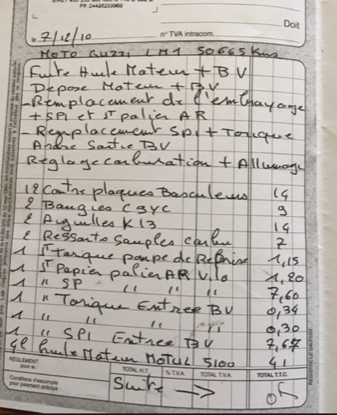 PR 24428233960
Doit
le 7/12/10
n° TVA intracom.
MOTO GUZZI LM1 50665 Kms
Fuite Huile Moteur + BV
Dépose Moteur + BV
- Remplacement de l'embrayage
+ SPI et Jt palier AR
- Remplacement SPI + Torique
Arbre Sortie BV
Réglage carburation + Allumage
12 Contre plaques Basculeurs 14
2 Bangles C94C 9
2 Aiguilles K13 14
2 Ressorts Souples carbu 7
1 Jt torique pompe de Reprise 1,15
1 Jt Papier palier AR Vilo 1,20
1 " SP " " " 7,60
1 " Torique Entree BV 0,34
1 " " " 0,30
1 " SPI Entree BV 7,67
4l huile Moteur Motul 5100 41
RÈGLEMENT
pour le
TOTAL H.T. % T.V.A. TOTAL T.V.A. TOTAL T.T.C.
Conditions d'escompte
pour paiement anticipé :
Suite →